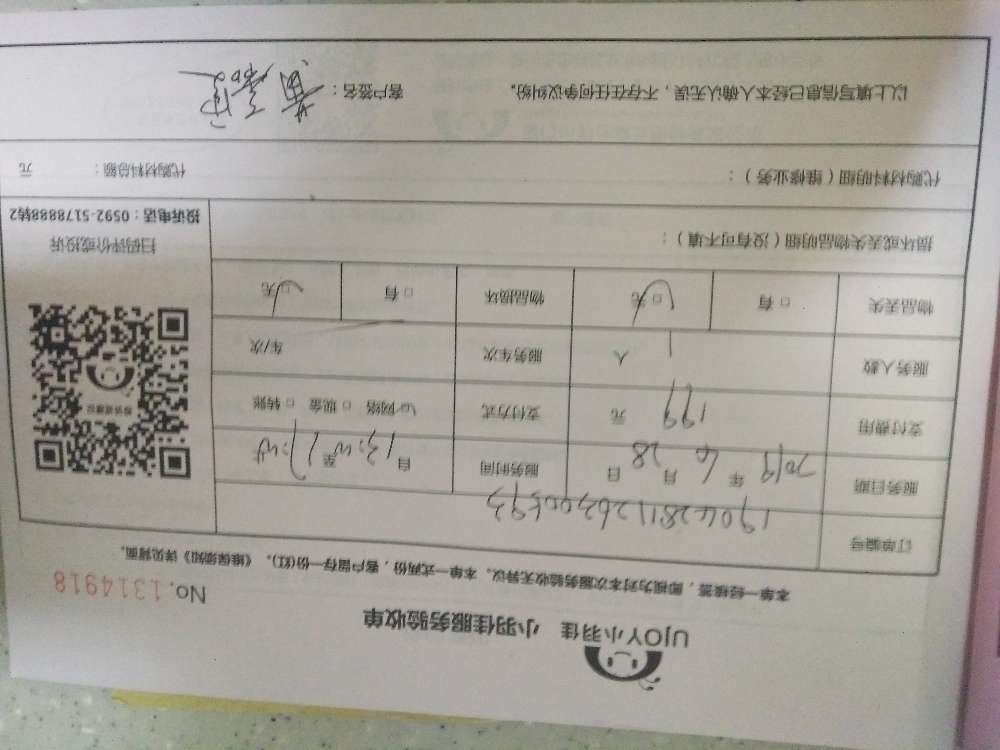 UJOY小羽佳 小羽佳服务验收单
No.1314918
本单一经接签，即视为对本次服务验收无异议。本单一式两份，客户留存一份(红)。《维保须知》详见背面。
订单编号
服务日期 2019 年 4 月 28 日 服务时间 自 至
支付费用 199 元 支付方式 网络 □ 现金 □ 转账
服务人数 1 人 服务车次 车/次
物品丢失 □ 有 □ 无 物品损坏 □ 有 □ 无
损坏或丢失物品明细（没有可不填）：
扫码评价或投诉
投诉电话：0592-5178888转2
代购材料明细（维修业务）： 代购材料总额： 元
以上填写信息已经本人确认无误，不存在任何争议纠纷。 客户签名：